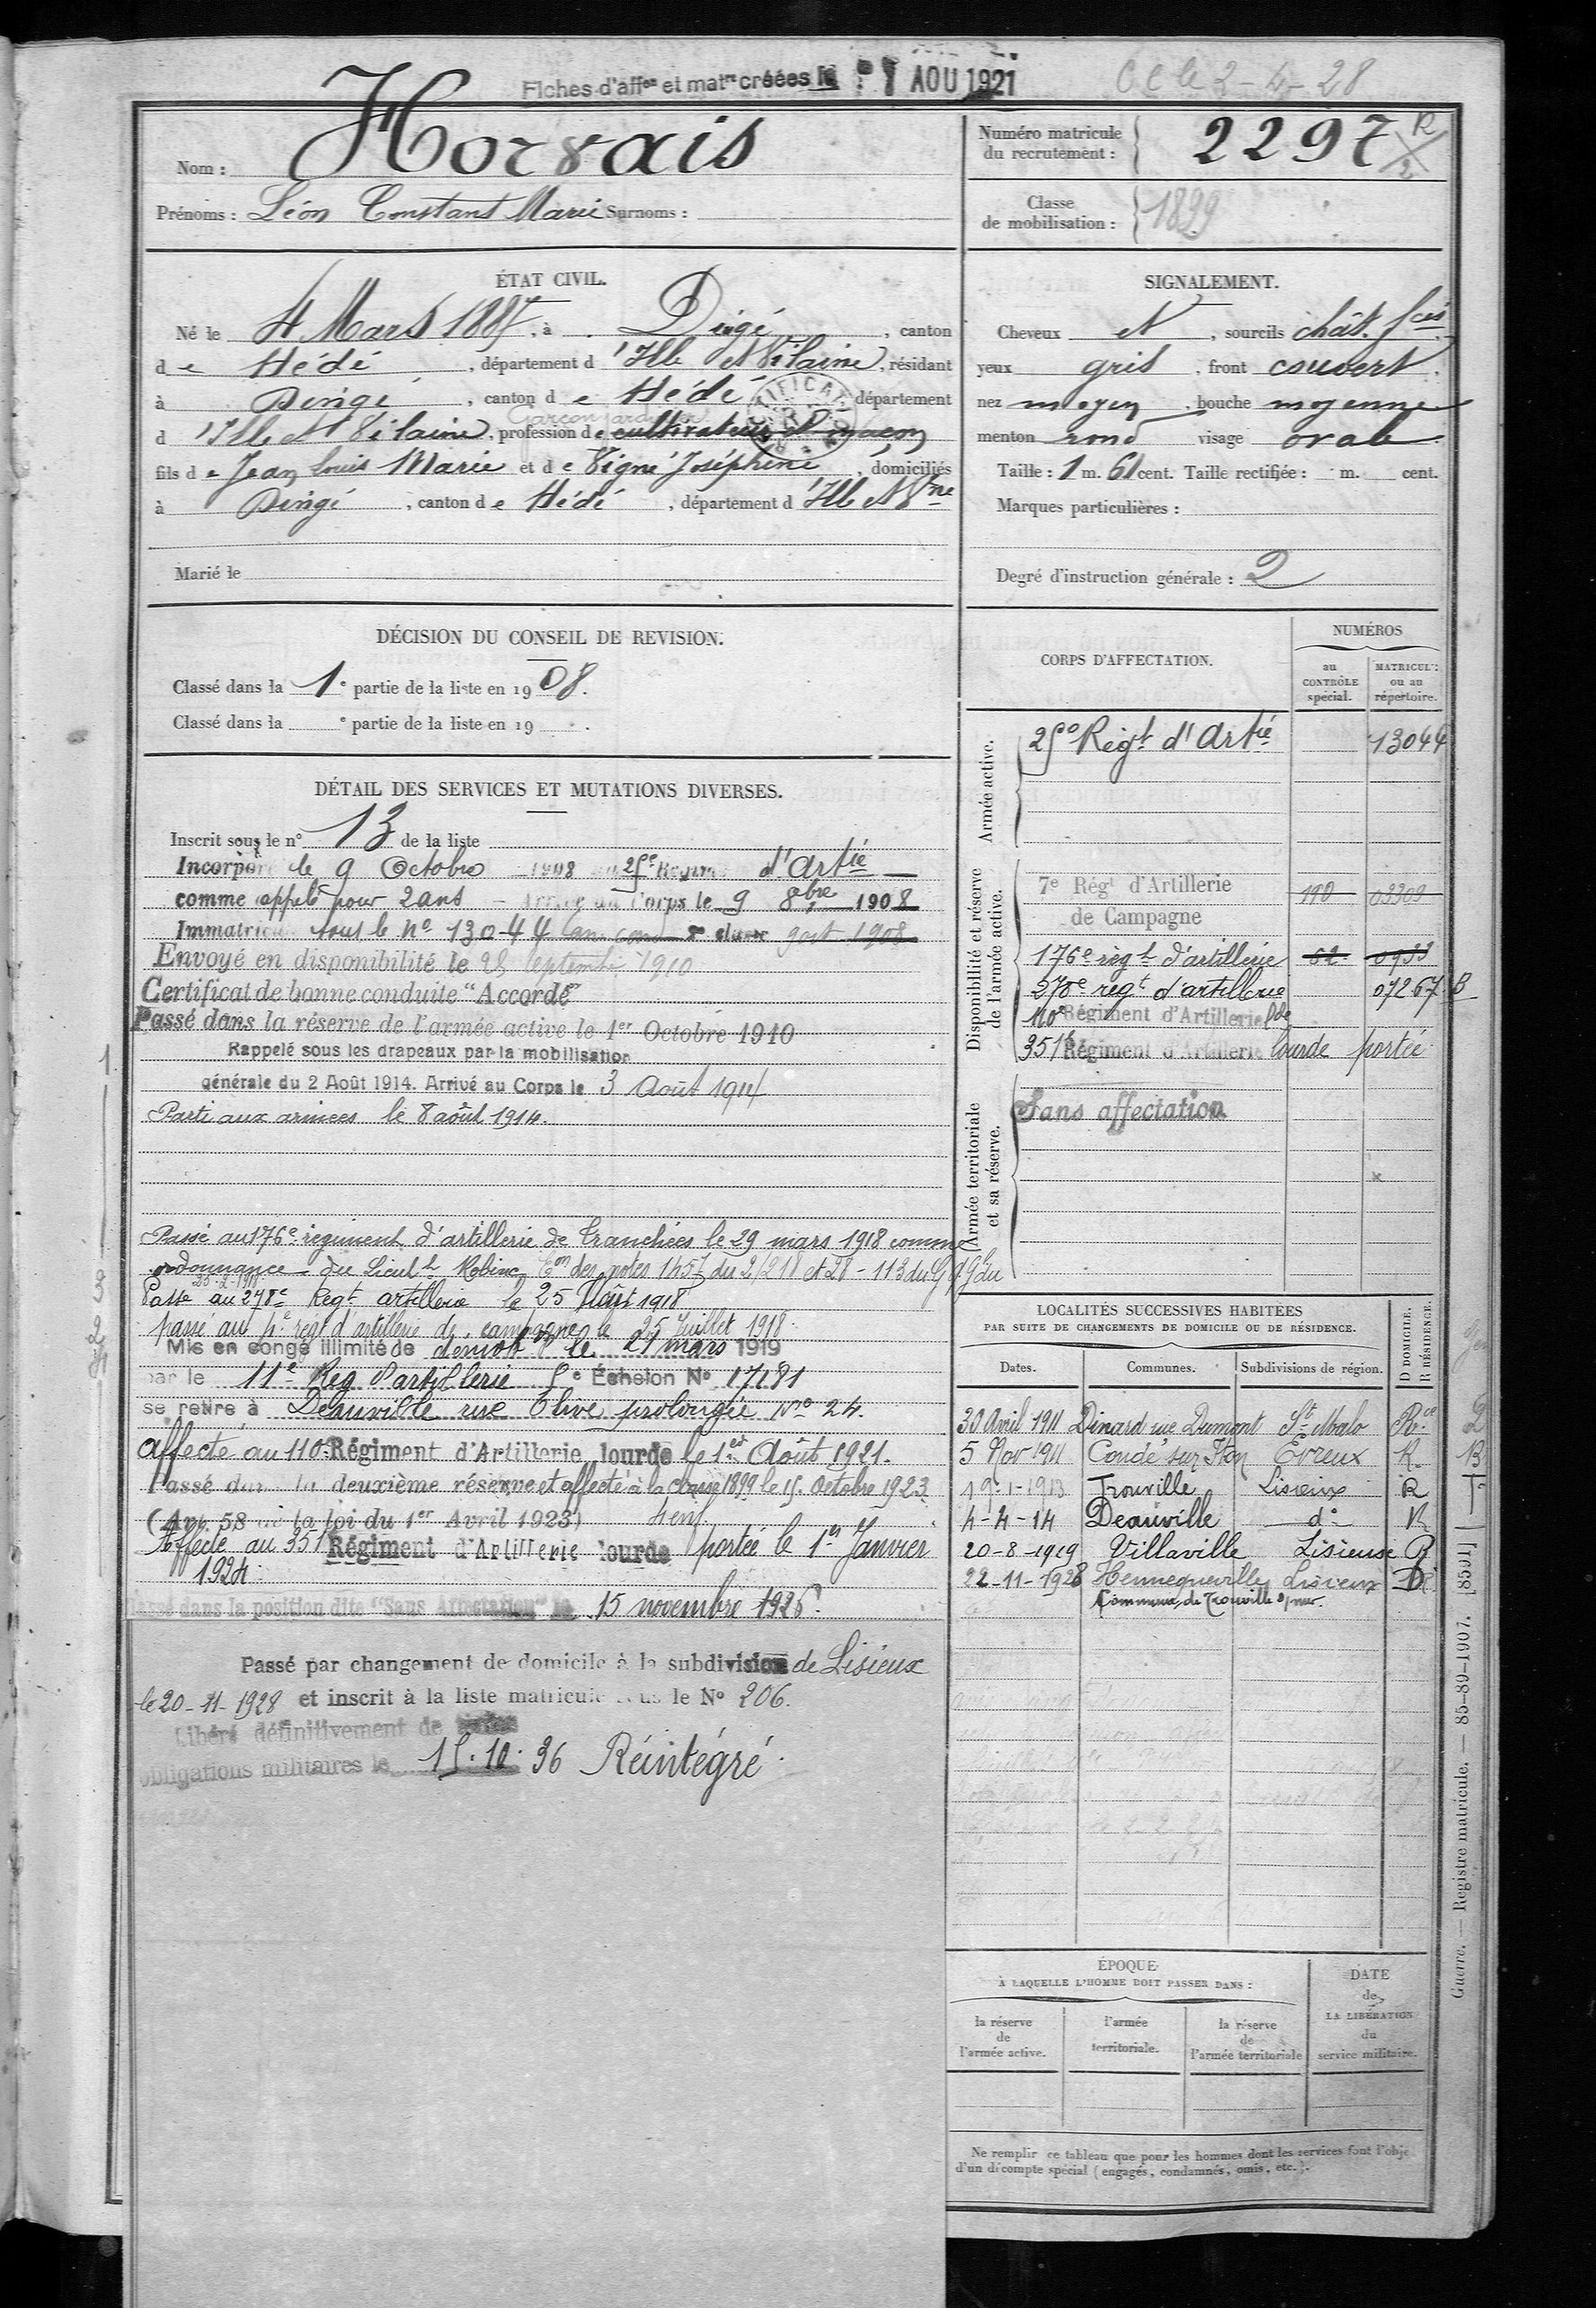 Fiches d'aff<sup>on</sup> et mat<sup>re</sup> créées le 1 AOU 1921
C C le 2-4-28
Nom : Horvais
Prénoms : Léon Constant Marie Surnoms :
Numéro matricule du recrutement : 2297
R/2
Classe de mobilisation : 1899
ÉTAT CIVIL.
Né le 4 Mars 1887, à Dingé, canton
de Hédé, département d'Ille et Vilaine, résidant
à Dingé, canton de Hédé département
d'Ille et Vilaine, profession de cultivateur et maçon
Garçon jardinier
fils de Jean Louis Marie et de Vigné Joséphine, domiciliés
à Dingé, canton de Hédé, département d'Ille et V<sup>ne</sup>
Marié le
SIGNALEMENT.
Cheveux et, sourcils chât. f<sup>cés</sup>
yeux gris, front couvert.
nez moyen, bouche moyenne
menton rond visage ovale.
Taille : 1 m. 61 cent. Taille rectifiée : m. cent.
Marques particulières :
Degré d'instruction générale : 2
DÉCISION DU CONSEIL DE REVISION.
Classé dans la 1<sup>e</sup> partie de la liste en 1908.
Classé dans la <sup>e</sup> partie de la liste en 19 .
DÉTAIL DES SERVICES ET MUTATIONS DIVERSES.
Inscrit sous le n° 13 de la liste
Incorporé le 9 Octobre 1908 au 25<sup>e</sup> Régim d'Art<sup>ie</sup>
comme appelé pour 2 ans – Arrivé au Corps le 9 8<sup>bre</sup> 1908
Immatricu sous le N° 13044 2<sup>e</sup> 1908
Envoyé en disponibilité le 25 septembre 1910
Certificat de bonne conduite "Accordé"
Passé dans la réserve de l'armée active le 1<sup>er</sup> Octobre 1910
Rappelé sous les drapeaux par la mobilisation
générale du 2 Août 1914. Arrivé au Corps le 3 Août 1914
Parti aux armées le 8 août 1914.
Passé au 176<sup>e</sup> régiment d'artillerie de tranchées le 29 mars 1918 comme
ordonnance du Lieut<sup>t</sup> Robine des notes 1457 du 2/2 18 et 28-113 du G.Q.G. du
25-2-1918
Passé au 278<sup>e</sup> Reg<sup>t</sup> artillerie le 25 1918
passé au reg<sup>t</sup> d'artillerie de campagne le 25 Juillet 1918
Mis en congé illimité de démob<sup>on</sup> le 21 mars 1919
par le 11<sup>e</sup> Reg d'artillerie 5<sup>e</sup> Échelon N° 17181
se retire à Deauville rue Olive prolongée N° 24.
Affecté au 110<sup>e</sup> Régiment d'Artillerie lourde le 1<sup>er</sup> Août 1921.
Passé dans la deuxième réserve et affecté à la classe 1899 le 15 Octobre 1923
(Art. 58 de la loi du 1<sup>er</sup> Avril 1923) 4 enf.
Affecté au 351<sup>e</sup> Régiment d'Artillerie lourde portée le 1<sup>er</sup> Janvier
1924.
Classé dans la position dite "Sans Affectation" le 15 novembre 1926.
Passé par changement de domicile à la subdivision de Lisieux
le 20-11-1928 et inscrit à la liste matricule sous le N° 206.
Libéré définitivement de toutes
obligations militaires le 15.10.36 Réintégré.
CORPS D'AFFECTATION.
NUMÉROS
au CONTRÔLE spécial.
MATRICULE ou au répertoire.
Armée active.
25<sup>e</sup> Rég<sup>t</sup> d'Art<sup>ie</sup> 13044
Disponibilité et réserve de l'armée active.
7<sup>e</sup> Rég<sup>t</sup> d'Artillerie de Campagne 190 03309
176<sup>e</sup> rég<sup>t</sup> d'artillerie 52 0933
278<sup>e</sup> rég<sup>t</sup> d'artillerie 07267 B
110<sup>e</sup> Régiment d'Artillerie l<sup>de</sup>
351<sup>e</sup> Régiment d'Artillerie lourde portée
Armée territoriale et sa réserve.
Sans affectation
LOCALITÉS SUCCESSIVES HABITÉES
PAR SUITE DE CHANGEMENTS DE DOMICILE OU DE RÉSIDENCE.
Dates. Communes. Subdivisions de région. D DOMICILE. R RÉSIDENCE.
30 Avril 1911 Dinard rue Dumont S<sup>t</sup> Malo R<sup>ce</sup>
5 Nov 1911 Condé sur Iton Evreux R.
19-1-1913 Trouville Lisieux R
4-4-14 Deauville d° R
20-8-1919 Villaville Lisieux R
22-11-1928 Hennequeville Lisieux D
Commune de Trouville s/mer.
ÉPOQUE
À LAQUELLE L'HOMME DOIT PASSER DANS :
la réserve de l'armée active.
l'armée territoriale.
la réserve de l'armée territoriale
DATE de LA LIBÉRATION du service militaire.
Ne remplir ce tableau que pour les hommes dont les services font l'obje
d'un décompte spécial (engagés, condamnés, omis, etc.).
Guerre. — Registre matricule. — 85-89-1907. [8591]